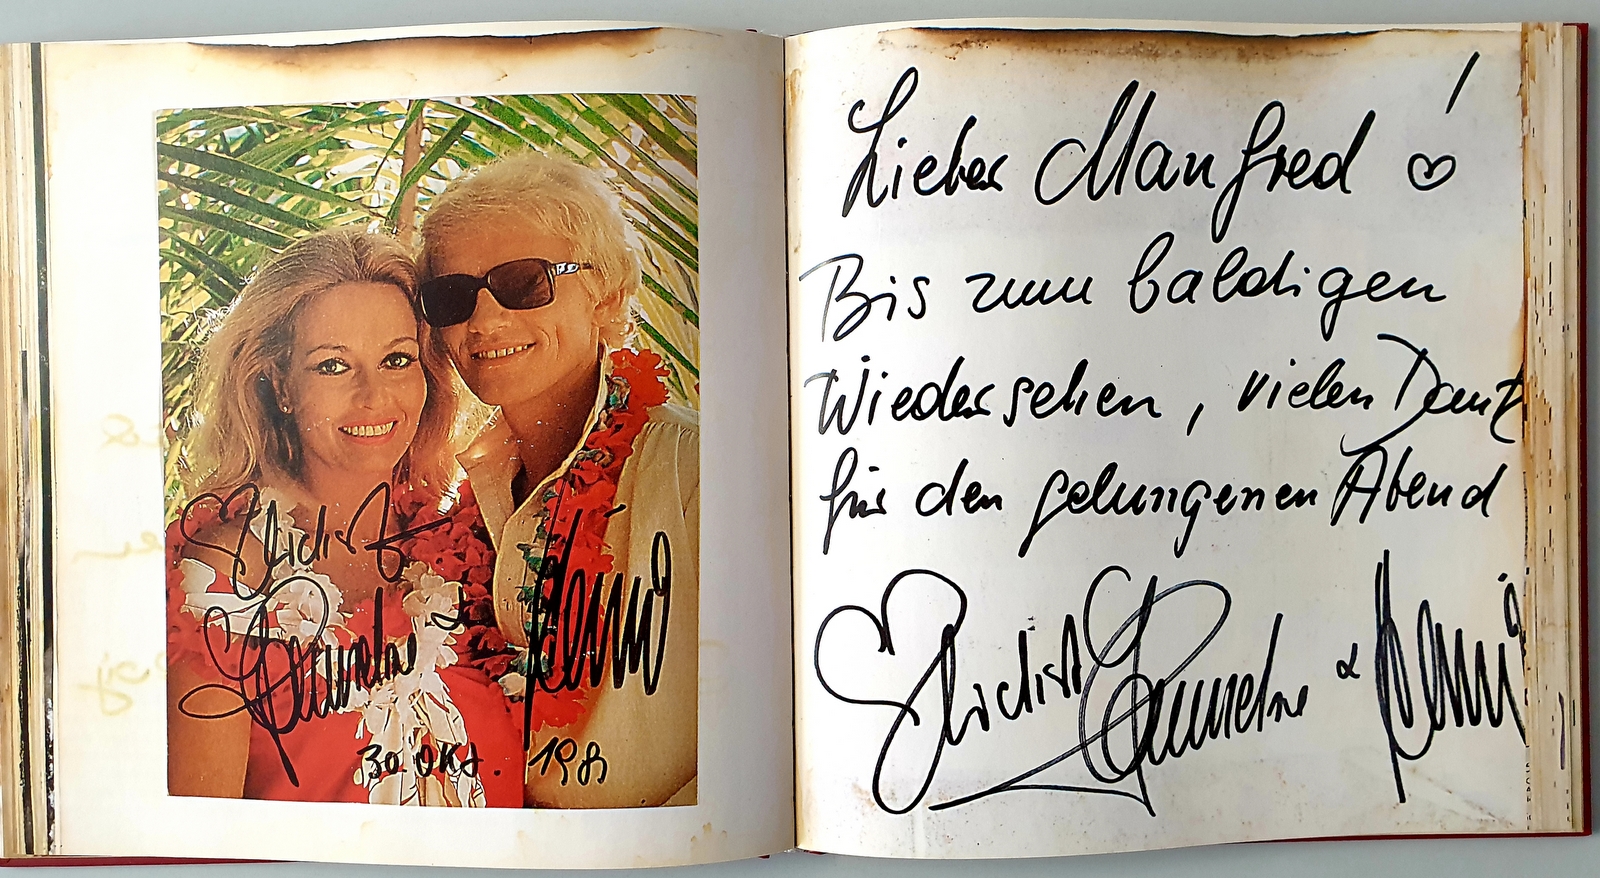 Herzlichst
Hannelore + Heino
30. Okt. 1981
Lieber Manfred ♡!
Bis zum baldigen
Wiedersehen, vielen Dank
für den gelungenen Abend
Herzlichst Hannelore & Heino